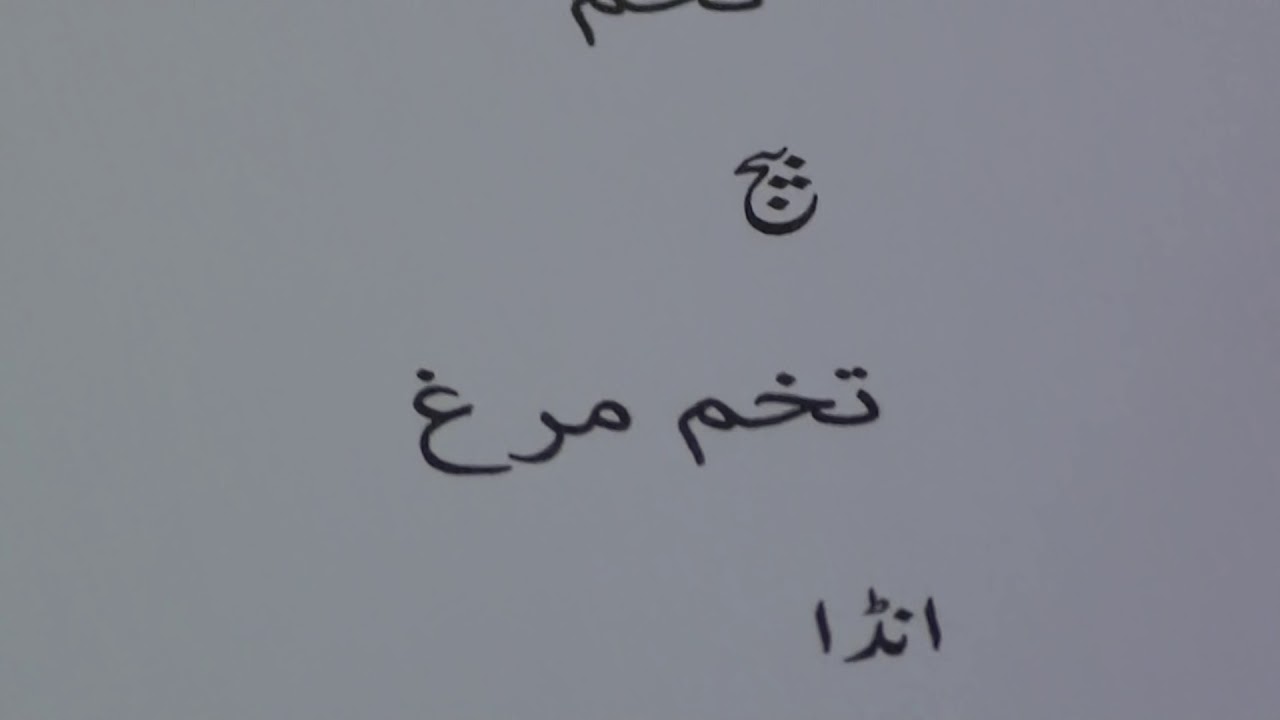 بیج
تخم مرغ
انڈا